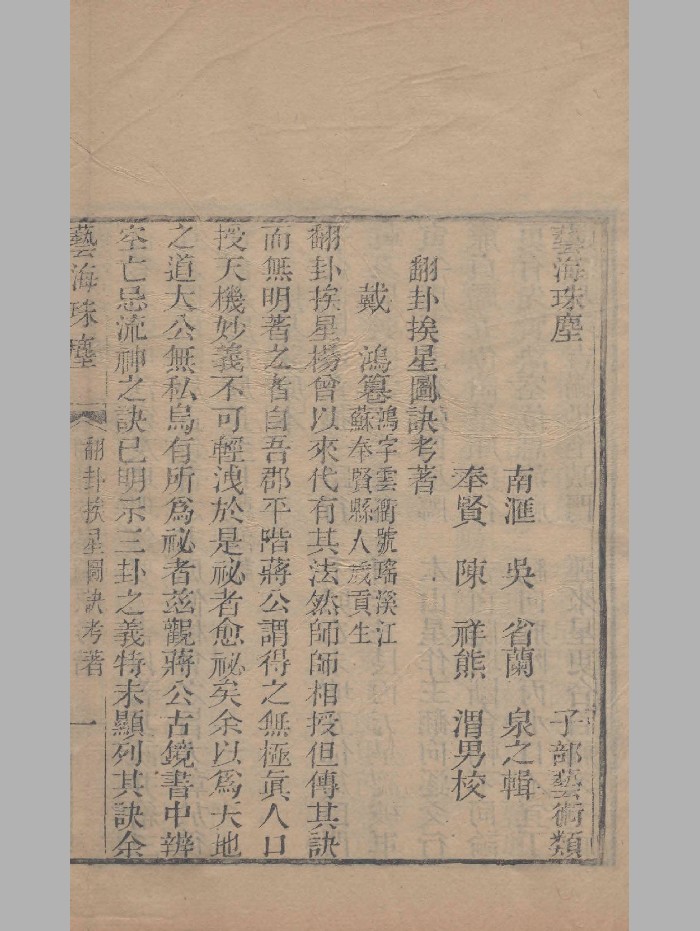 藝海珠塵　子部藝術類
南滙　吳　省蘭　泉之輯
奉賢　陳　祥熊　渭男校
翻卦挨星圖訣考著
戴　鴻篹
鴻字雲衢號瑤溪江
蘇奉賢縣人歲貢生
翻卦挨星楊曾以來代有其法然師師相授但傳其訣
而無明著之者自吾郡平階蔣公謂得之無極眞人口
授天機妙義不可輕洩於是祕者愈祕矣余以爲天地
之道大公無私烏有所爲祕者茲觀蔣公古鏡書中辨
空亡忌流神之訣已明示三卦之義特未顯列其訣余
藝海珠塵　翻卦挨星圖訣考著　一